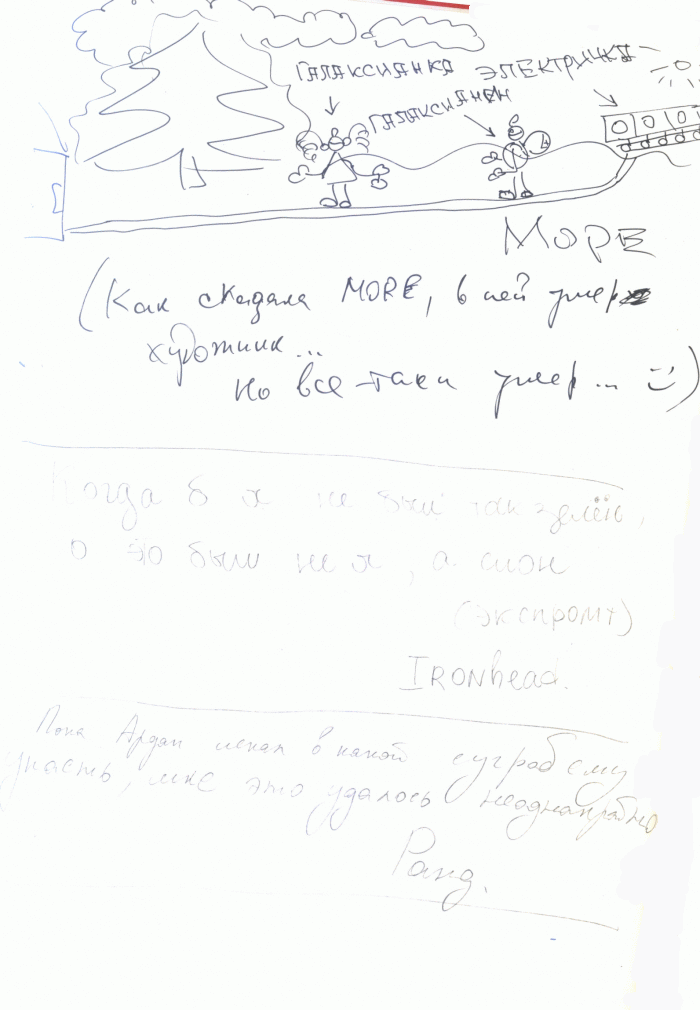 ГАЛАКСИАНКА ЭЛЕКТРИЧКА
ГАЛАКСИАНЕН
МОРЕ
(Как сказала MORE, в ней умер
художник...
но все-таки умер... )
Когда б я не был так зелён,
то был не я, а слон
(экспромт)
IRONhead.
Пока Ардан искал в какой сугроб ему
упасть, мне это удалось неоднократно
Ранд.